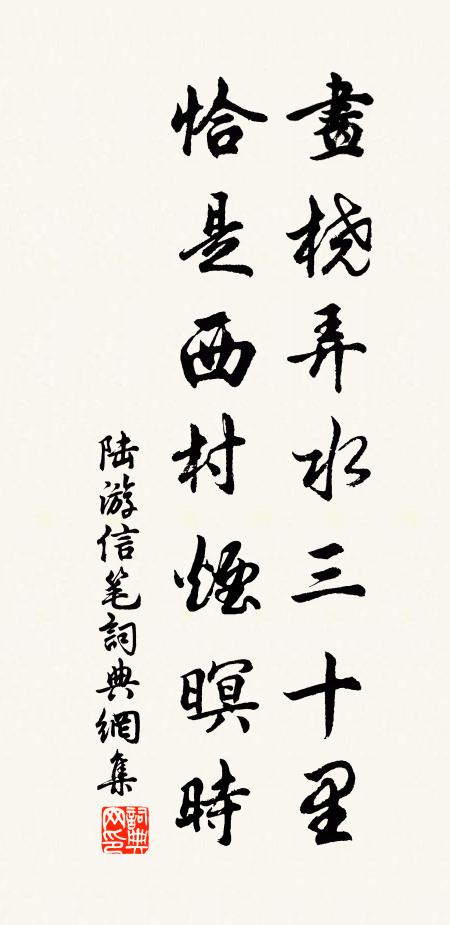 畫橈弄水三十里
恰是西村煙暝時
陆游信笔詞典網集
詞典网印